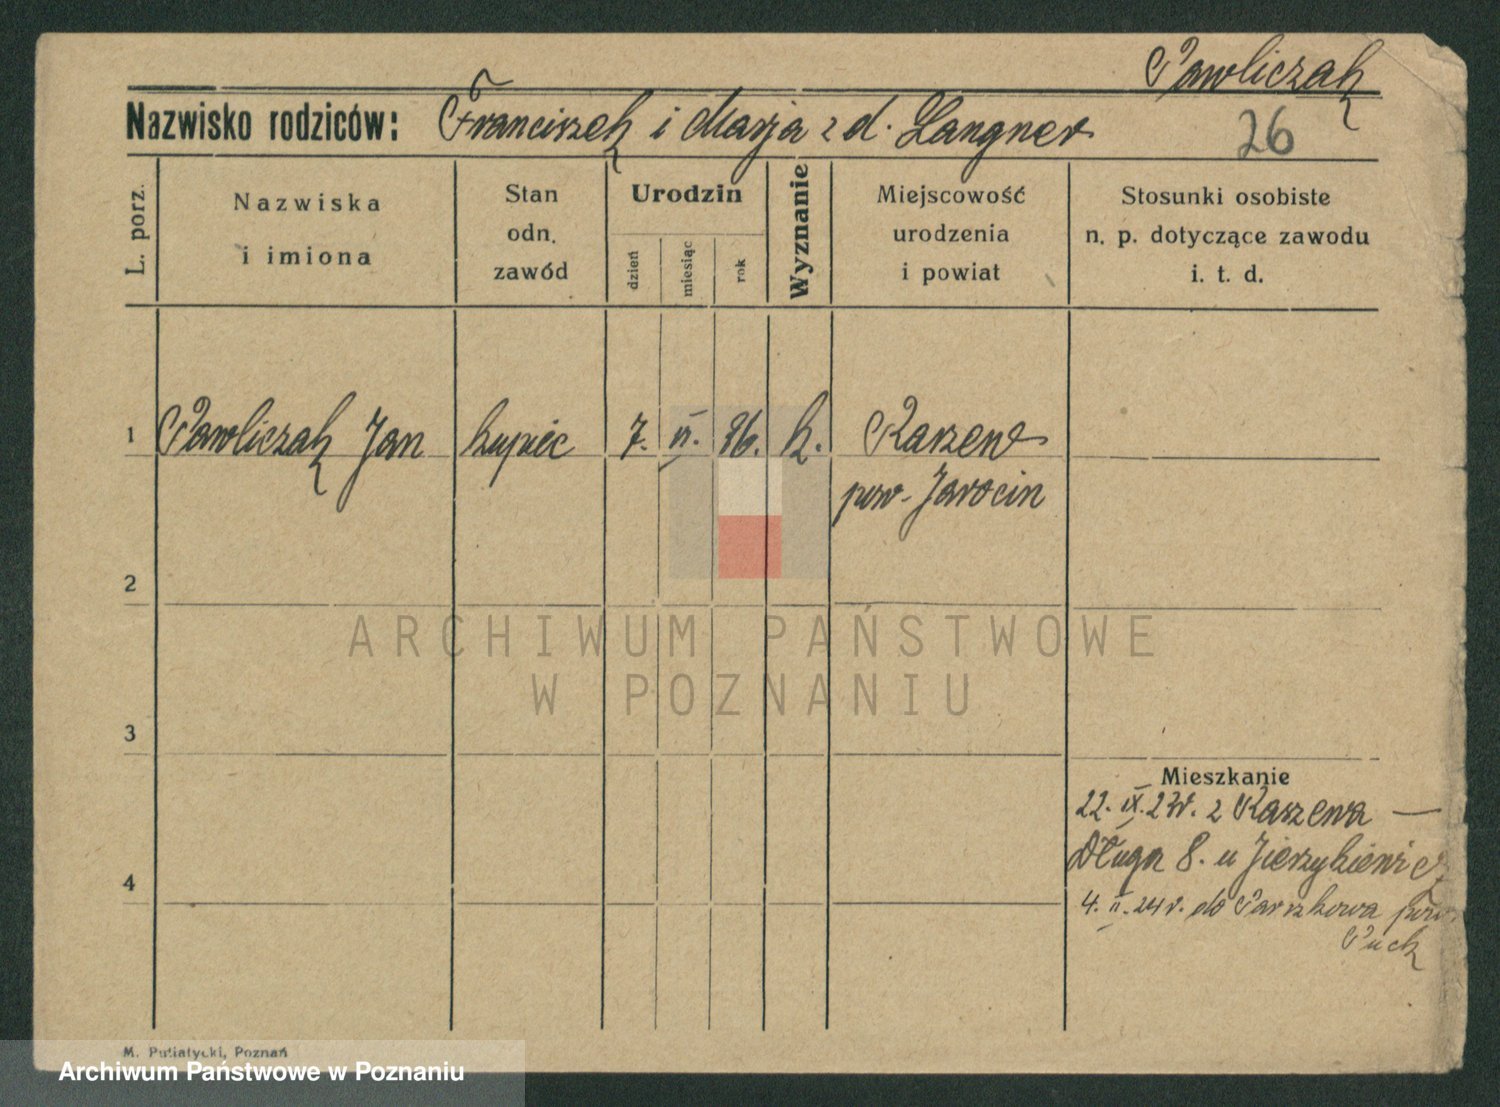 Pawliczak
Nazwisko rodziców: Franciszek i Marja z d. Langner
26
L. porz.
Nazwiska
i imiona
Stan
odn.
zawód
Urodzin
dzień
miesiąc
rok
Wyznanie
Miejscowość
urodzenia
i powiat
Stosunki osobiste
n. p. dotyczące zawodu
i. t. d.
1 Pawliczak Jan kupiec 7. II. 96. k. Karzew
pow. Jarocin
2
ARCHIWUM PAŃSTWOWE
W POZNANIU
3
Mieszkanie
22. IX. 23r. z Karzewa —
Długa 8. u Jierzykiewicz
4
4. II. 24 r. do Parszkowa pow.
Puck
M. Putiatycki, Poznań
Archiwum Państwowe w Poznaniu